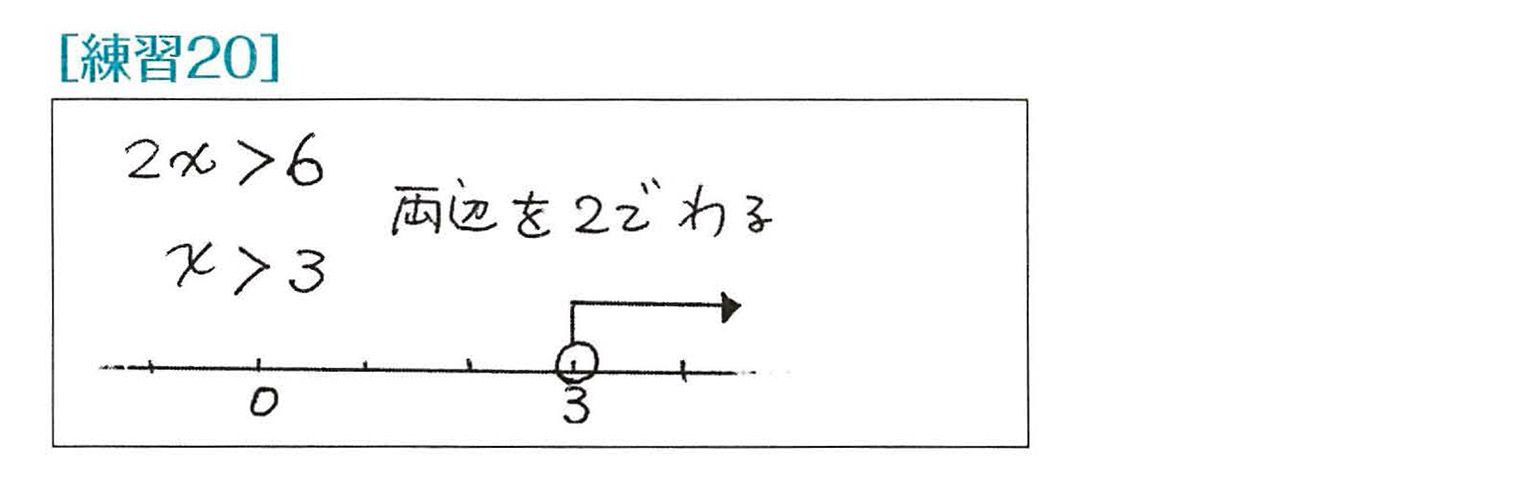 [練習20]
2x>6
両辺を2でわる
x>3
0 3